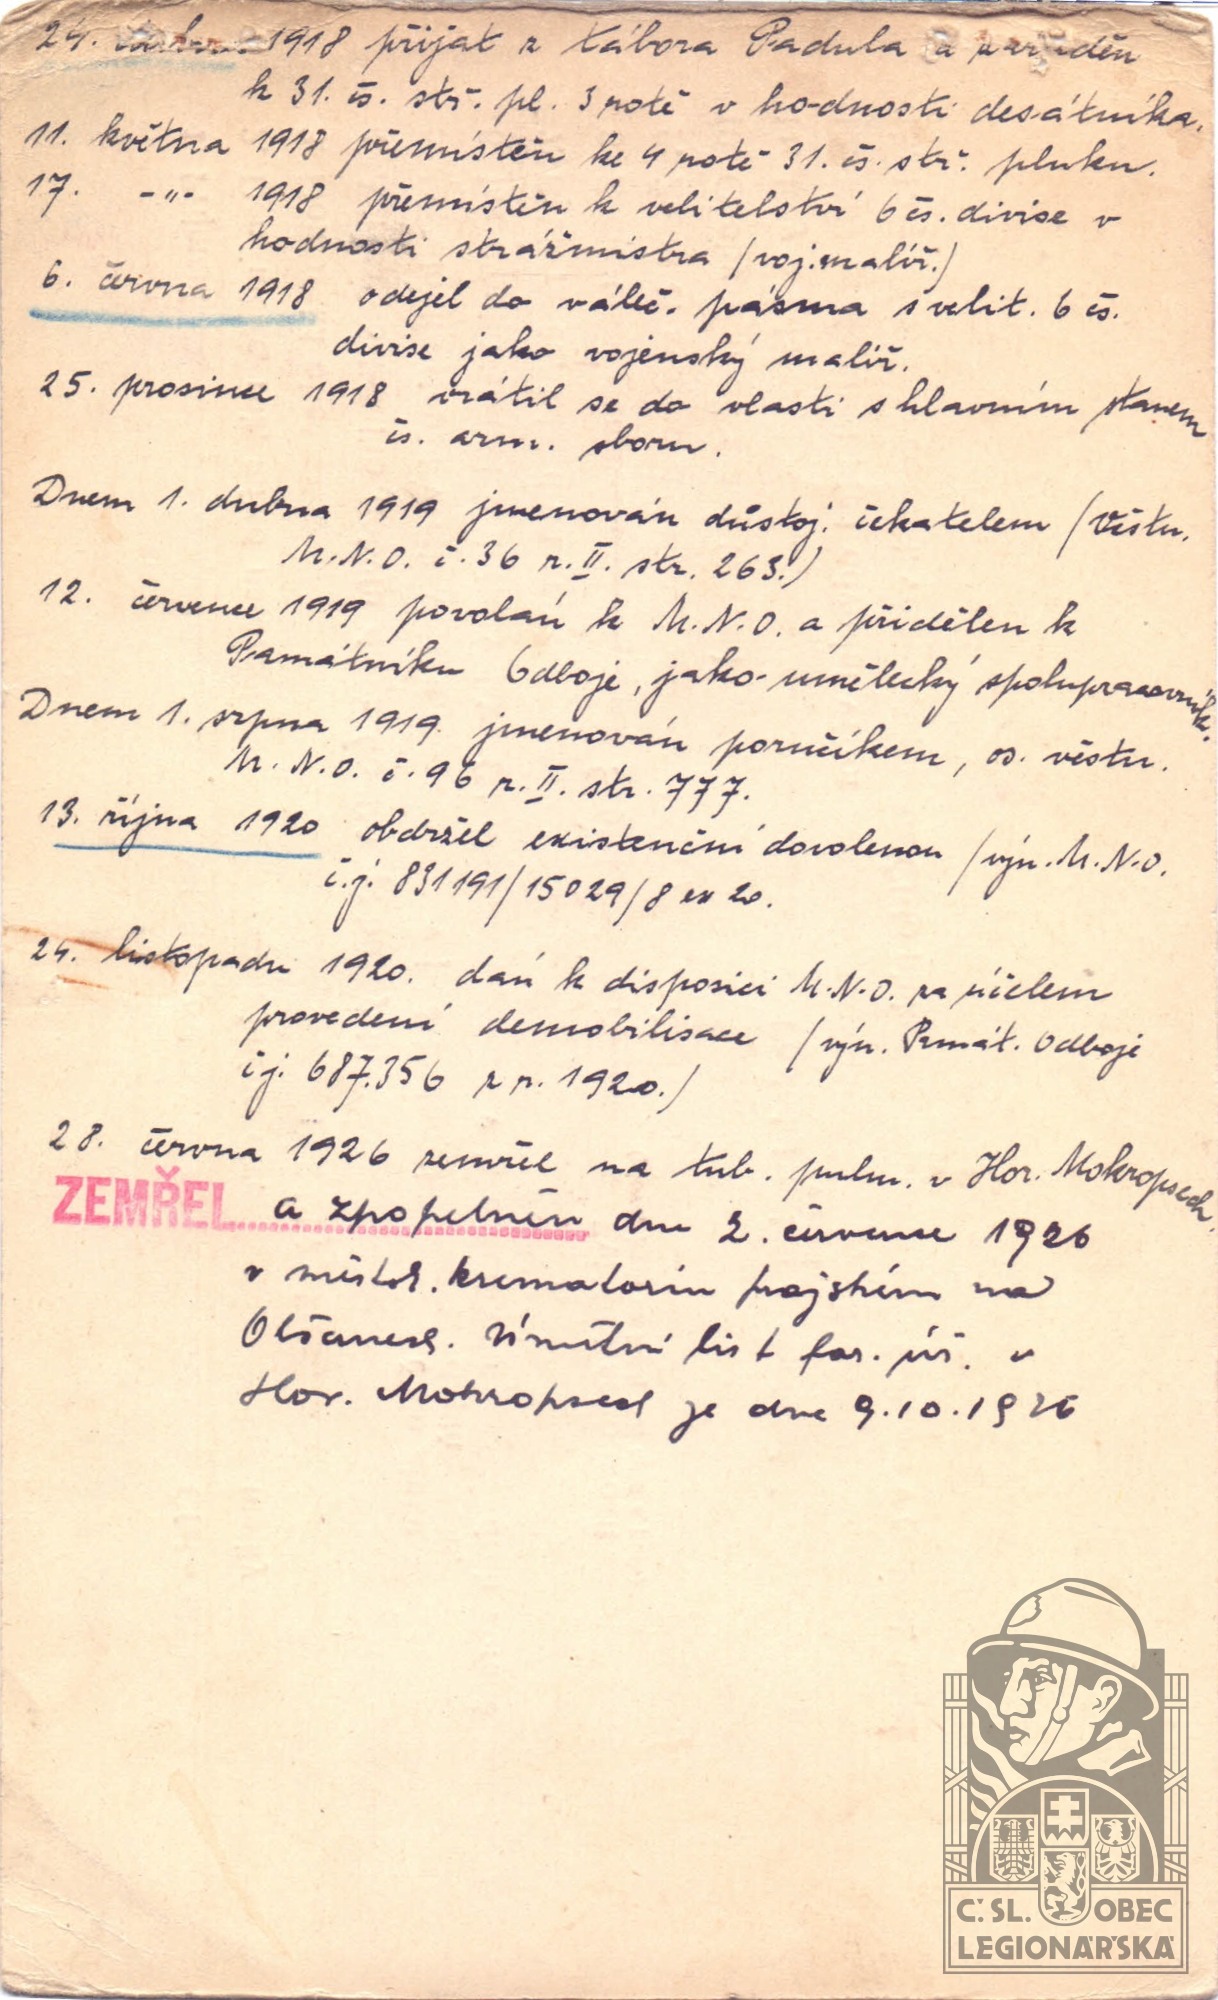 24. 1918 přijat z tábora Padula a zařaděn
k 31. čs. stř. pl. 3 rotě v hodnosti desátníka.
11. května 1918 přemístěn ke 4 rotě 31. čs. stř. pluku.
17. -„- 1918 přemístěn k velitelství 6 čs. divise v
hodnosti strážmistra /voj. malíř./
6. června 1918 odejel do váleč. pásma s velit. 6 čs.
divise jako vojenský malíř.
25. prosince 1918 vrátil se do vlasti s hlavním stanem
čs. arm. sboru.
Dnem 1. dubna 1919 jmenován důstoj. čekatelem /Věstn.
M.N.O. č. 36 r. II. str. 263./
12. července 1919 povolán k M.N.O. a přidělen k
Památníku Odboje, jako umělecký spolupracovník.
Dnem 1. srpna 1919 jmenován poručíkem, os. věstn.
M.N.O. č. 96 r. II. str. 777.
13. října 1920 obdržel existenční dovolenou /výn. M.N.O.
č.j. 831191/15029/8 ex 20.
24. listopadu 1920. dán k disposici M.N.O. za účelem
provedení demobilisace /výn. Památ. Odboje
čj. 687.356 z r. 1920./
28. června 1926 zemřel na tub. pulm. v Hor. Mokropsech.
ZEMŘEL a zpopelněn dne 2. července 1926
v městsk. krematoriu pražském na
Olšanech. Úmrtní list far. úř. v
Hor. Mokropsech je dne 9.10.1926
Č.SL. OBEC
LEGIONÁŘSKÁ